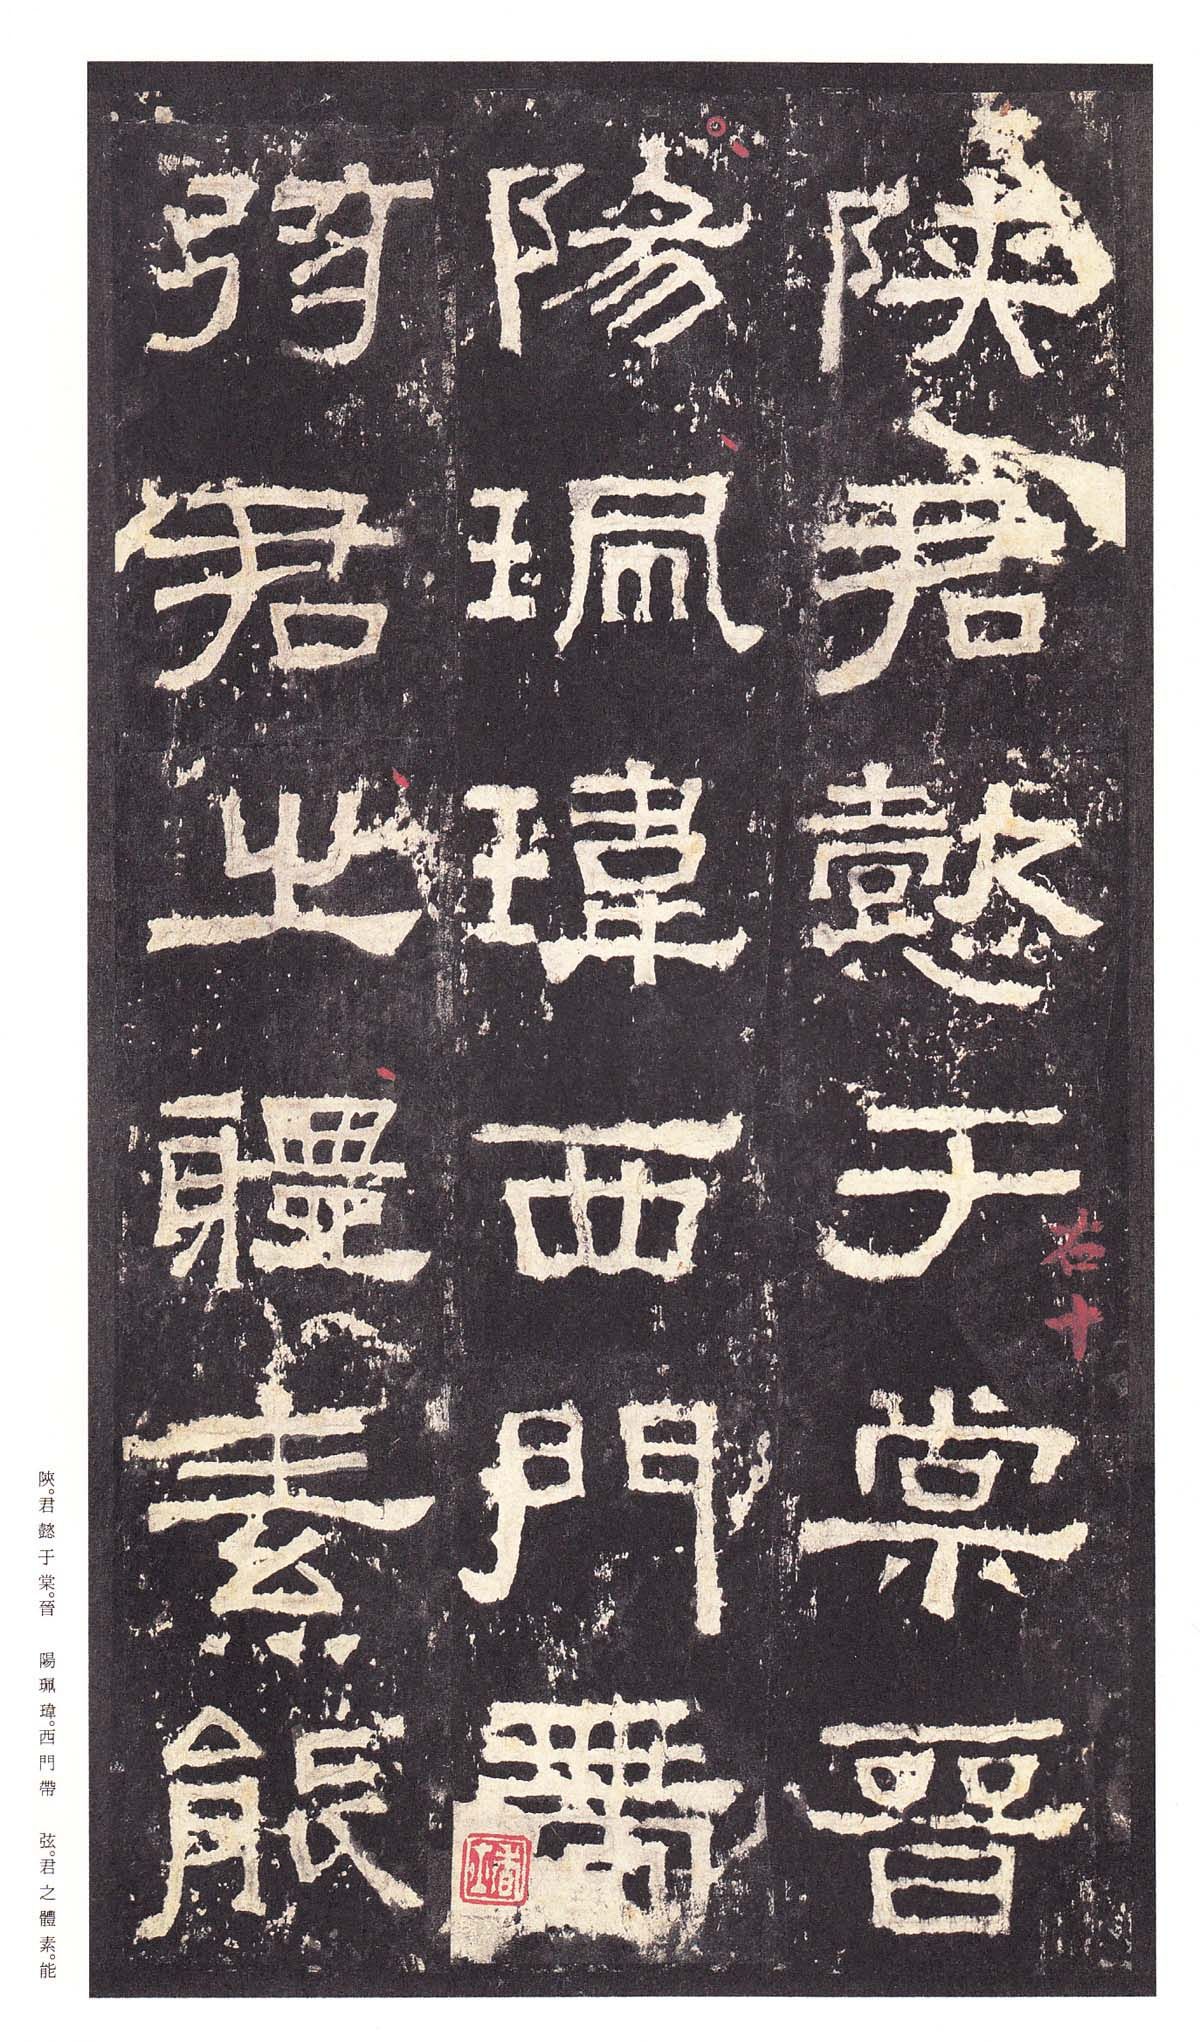 陝君懿于棠晉
陽珮瑋西門帶
弦君之體素能
在十
陝。君懿于棠。晉　陽珮瑋。西門帶　弦。君之體素。能